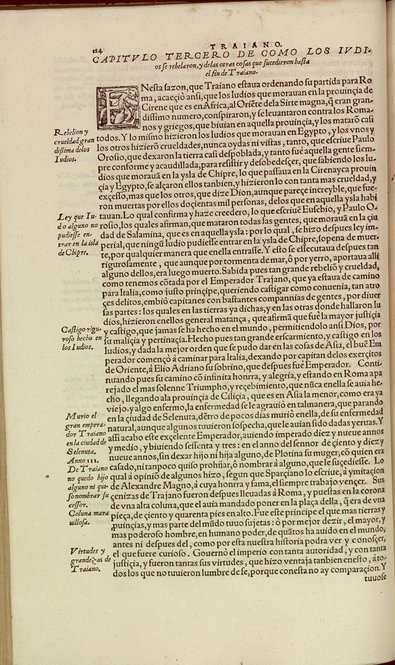 124
TRAIANO.
CAPITVLO TERCERO DE COMO LOS IVDI-
os se rebelaron, y delas otras cosas que sucedieron hasta
el fin de Traiano.
ENesta sazon, que Traiano estaua ordenando su partida para Ro
ma, acaeçió ansi, que los Iudios que morauan en la prouinçia de
Cirene que es en Africa, al Oriẽte dela Sirte magna, q̃ eran gran-
dissimo numero, conspiraron, y se leuantaron contra los Roma-
nos y griegos, que biuian en aquella prouinçia, y los mataró casi
todos. Y lo mismo hizieron los Iudios que morauan en Egypto, y los vnos y
los otros hizierõ crueldades, nunca oydas ni vistas, tanto, que escriue Paulo
Orosio, que dexaron la tierra casi despoblada, y tanto fué aquella gente siem-
pre conforme y acaudillada, para resistir y desobedesçer, que sabiendo los Iu-
dios que morauã en la ysla de Chipre, lo que passaua en la Cirenayca prouin
çia, y Egypto, se alçaron ellos tambien, y hizieron lo con tanta mas crueldad, y
exçesso, mas que los otros, que dize Dion, aunque pareçe increyble, que fue-
ron muertas por ellos dozientas mil personas, delos que en aquella ysla habi
tauan. Lo qual confirma y haze creedero, lo que escriuẽ Eusébio, y Paulo O-
rosio, los quales afirman, que mataron todas las gentes, que morauã en la çiu
dad de Salamina, que es en aquella ysla: por lo qual, se hizo despues ley im-
perial, que ningũ Iudio pudiesse entrar en la ysla de Chipre, so pena de muer-
te, por qualquier manera que enella entrasse. Y esto se essecutaua despues tan
rigurosamente, que aunque por tormenta de mar, ó por yerro, aportaua allí
alguno dellos, era luego muerto. Sabida pues tan grande rebeliõ y crueldad,
como tenemos cõtada por el Emperador Trajano, que ya estaua de camino
para Italia, como iusto prinçipe, queriendo castigar como conuenia, tan atro
çes delitos, embió capitanes con bastantes compannias de gentes, por diuer
sas partes: los quales en las tierras ya dichas, y en las otras donde hallaron Iu
dios, hizieron enellos general matança, que afirmã que fué la mayor justiçia
y castigo, que jamas se ha hecho en el mundo, permitiendolo ansi Dios, por
su maliçia y pertinaçia. Hecho pues tan grande escarmiento, y castigo en los
Iudios, y dada la mejor orden que se pudo dar en las cosas de Asia, el buẽ Em
perador començó à caminar para Italia, dexando por capitan delos exerçitos
de Oriente, à Elio Adriano su sobrino, que despues fué Emperador. Conti-
nuando pues su camino cõ infinita honrra, y alegria, y estando en Roma apa
rejado el mas solenne Triumpho, y reçebimiento, que nũca enella se auia he-
cho, llegando ala prouinçia de Ciliçia, que es en Asia la menor, como era ya
viejo y algo enfermo, la enfermedad se le agrauió en talmanera, que parando
en la ciudad de Selenuta, dẽtro de pocos dias murió enella, de su enfermedad
natural, aunque algunos tuuieron sospecha, que le auian sido dadas yeruas. Y
assi acabo este exçelente Emperador, auiendo imperado diez y nueue annos
y medio, y biuiendo sesenta y tres: en el anno del sennor de çiento y diez y
nueue annos, sin dexar hijo ni hija alguno, de Plotina su muger, cõ quien era
casado, ni tanpoco quiso prohijar, ó nombrar à alguno, que le suçediesse. La
qual à opinõ de algunos hizo, segun que Sparçiano lo escriue, à ymitaçion
de Alexandre Magno, à cuya honrra y fama, el siempre trabajo vençer. Sus
çenizas de Trajano fueron despues lleuadas à Roma, y puestas en la corona
de vna alta coluna, que el auia mandado poner en la plaça della, q̃ era de vna
pieça, de çiento y quarenta pies en alto. Fue este prinçipe el que mas tierras y
puinçias, y mas parte del mũdo tuuo sujetas: ó por mejor dezir, el mayor, y
mas poderoso hombre, en humano poder, de quãtos ha auido en el mundo,
antes ni despues del, como por esta nuestra historia podra ver y conosçer,
el que fuere curioso. Gouernó el imperio con tanta autoridad, y con tanta
justiçia, y fueron tantas sus virtudes, que hizo ventaja tambien enesto, à to-
dos los que no tuuieron lumbre de se, porque conesta no ay comparaçion. Y
tuuose
Rebelion y
crueldad gran
dissima delos
Iudios.
Ley que Iu-
dio alguno no
pudiesse en-
trar en la isla
de Chipre.
Castigo rigu-
roso hecho en
los Iudios.
Murio el
gran empera-
dor Traiano
en la ciudad de
Selenuta,
Anno 111.
De Traiano
no quedo hijo
alguno ni qui-
so nombrar su
cessor.
Coluna mara
uillosa.
Virtudes y
grandezas de
Traiano.